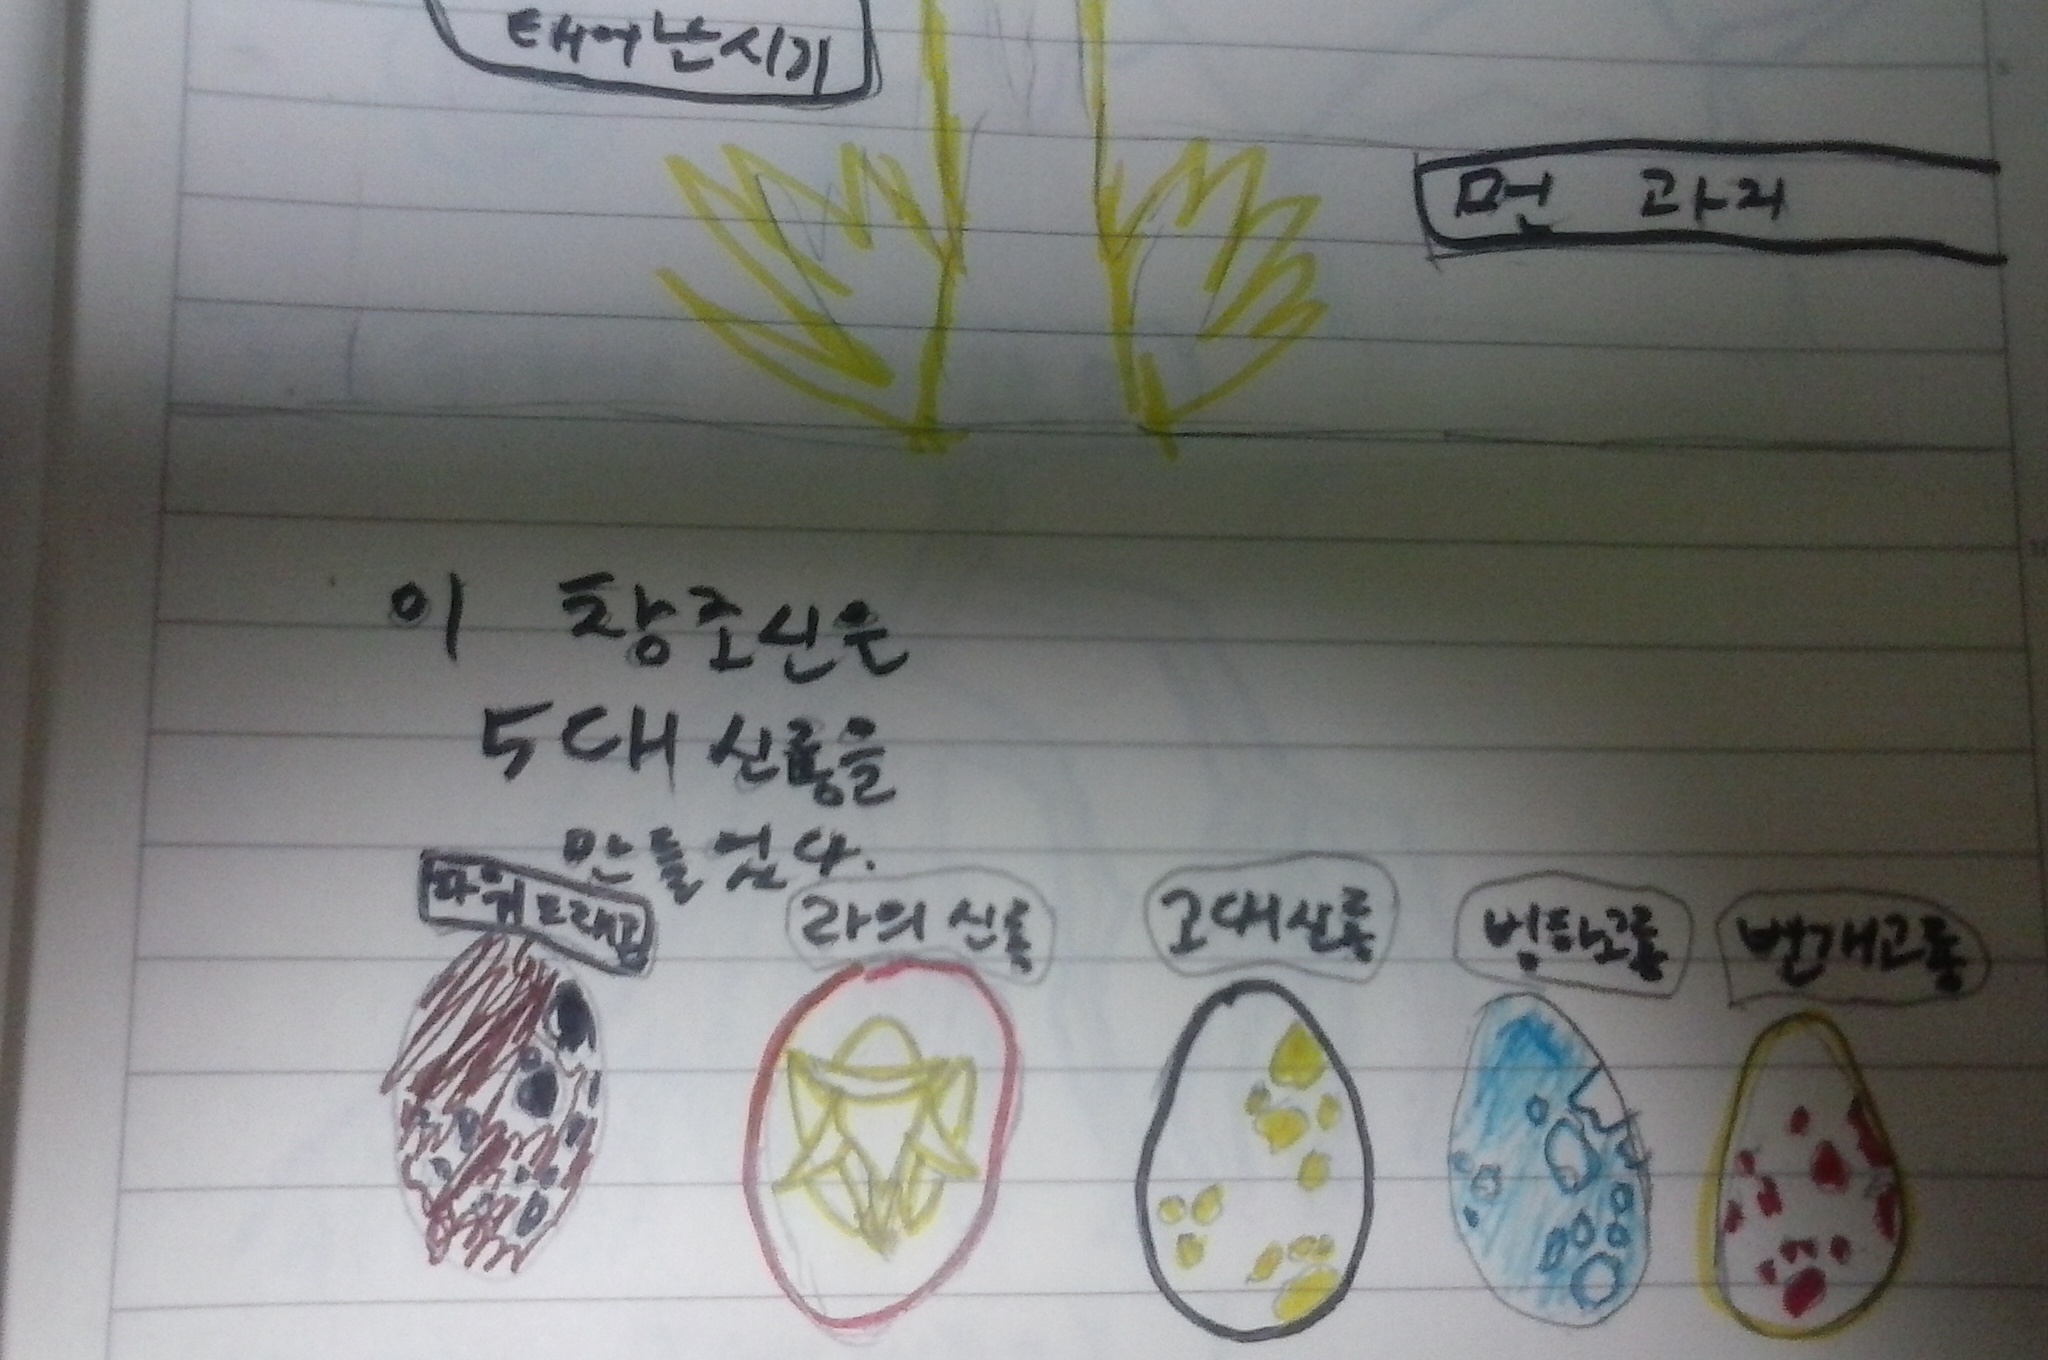 태어난시기
먼 과거
이 창조신은
5대 신룡을
만들었다.
파워드래곤
라의 신룡
고대신룡
빙하고룡
번개고룡